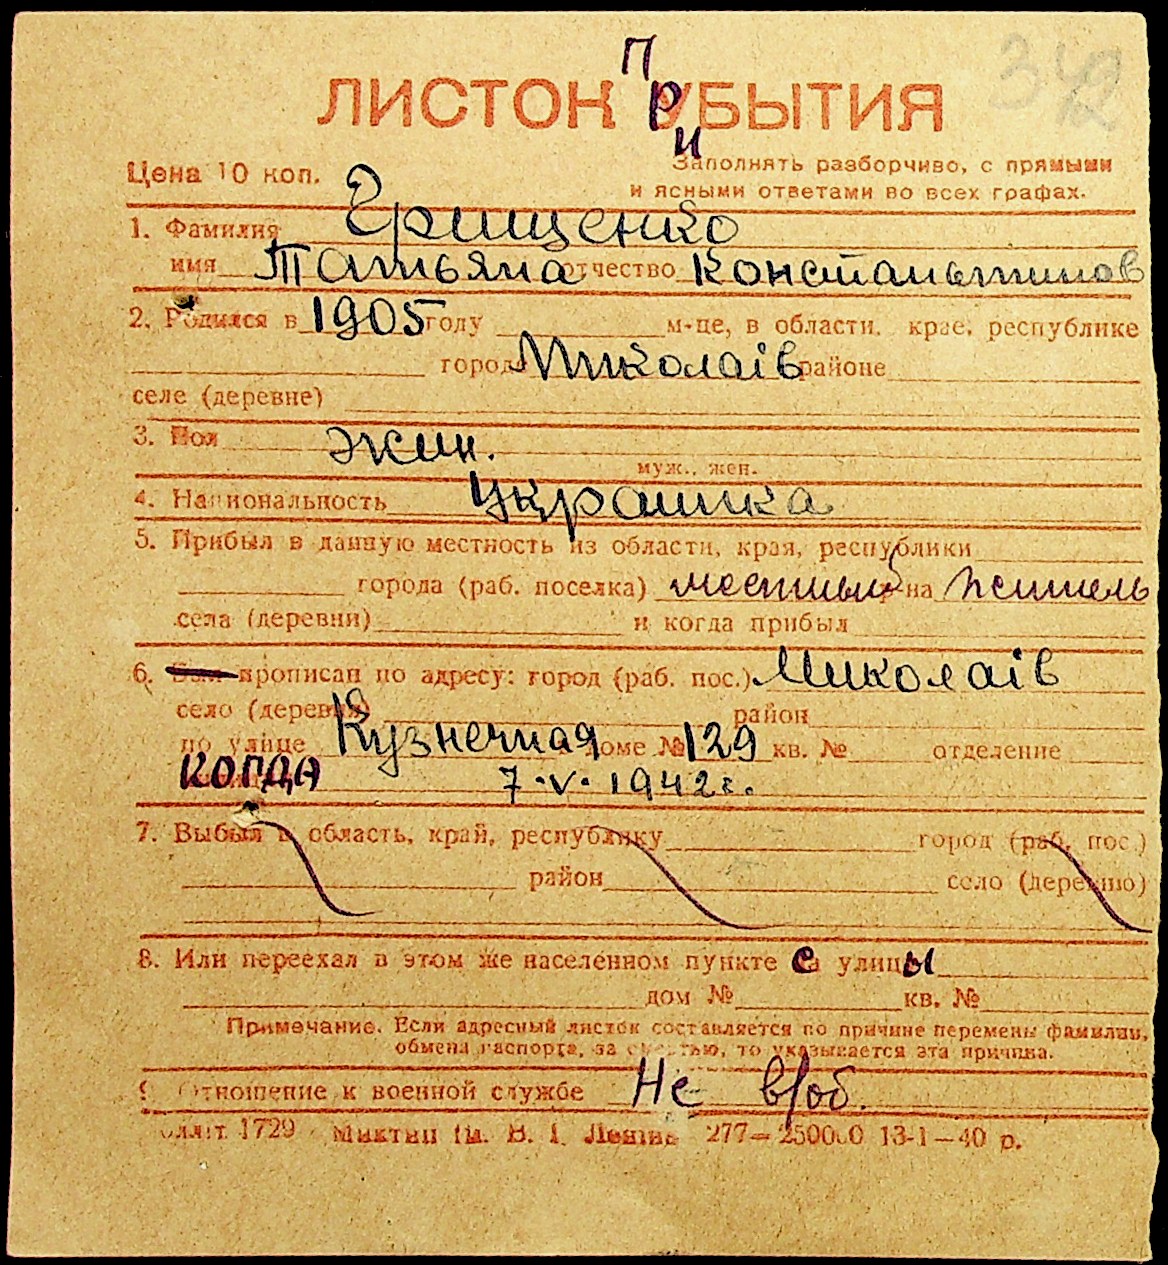 342
ПРИ
ЛИСТОК УБЫТИЯ
Цена 10 коп.
Заполнять разборчиво, с прямыми
и ясными ответами во всех графах.
1. Фамилия Грищенко
имя Татьяна отчество Константинов
2. Родился в 1905 году м-це, в области, крае, республике
городе Миколаів районе
селе (деревне)
3. Пол жин.
муж., жен.
4. Национальность Украинка
5. Прибыл в данную местность из области, края, республики
города (раб. поселка) местный р-на житель
села (деревни) и когда прибыл
6. Был прописан по адресу: город (раб. пос.) Миколаів
село (деревня) район
по улице Кузнечная в доме № 129 кв. № отделение
КОГДА 7·V·1942 г.
7. Выбыл в область, край, республику город (раб. пос.)
район село (деревню)
8. Или переехал в этом же населенном пункте с улицы
дом № кв. №
Примечание. Если адресный листок составляется по причине перемены фамилии,
обмена паспорта, за смертью, то указывается эта причина.
9. Отношение к военной службе Не в/об.
1729 277—250000 13-1—40 р.